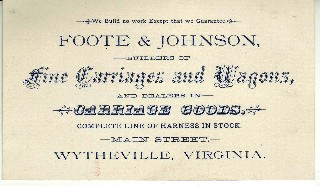 We Build no work Except that we Guarantee.
FOOTE & JOHNSON,
BUILDERS OF
Fine Carriages and Wagons,
AND DEALERS IN
CARRIAGE GOODS.
COMPLETE LINE OF HARNESS IN STOCK.
MAIN STREET.
WYTHEVILLE, VIRGINIA.